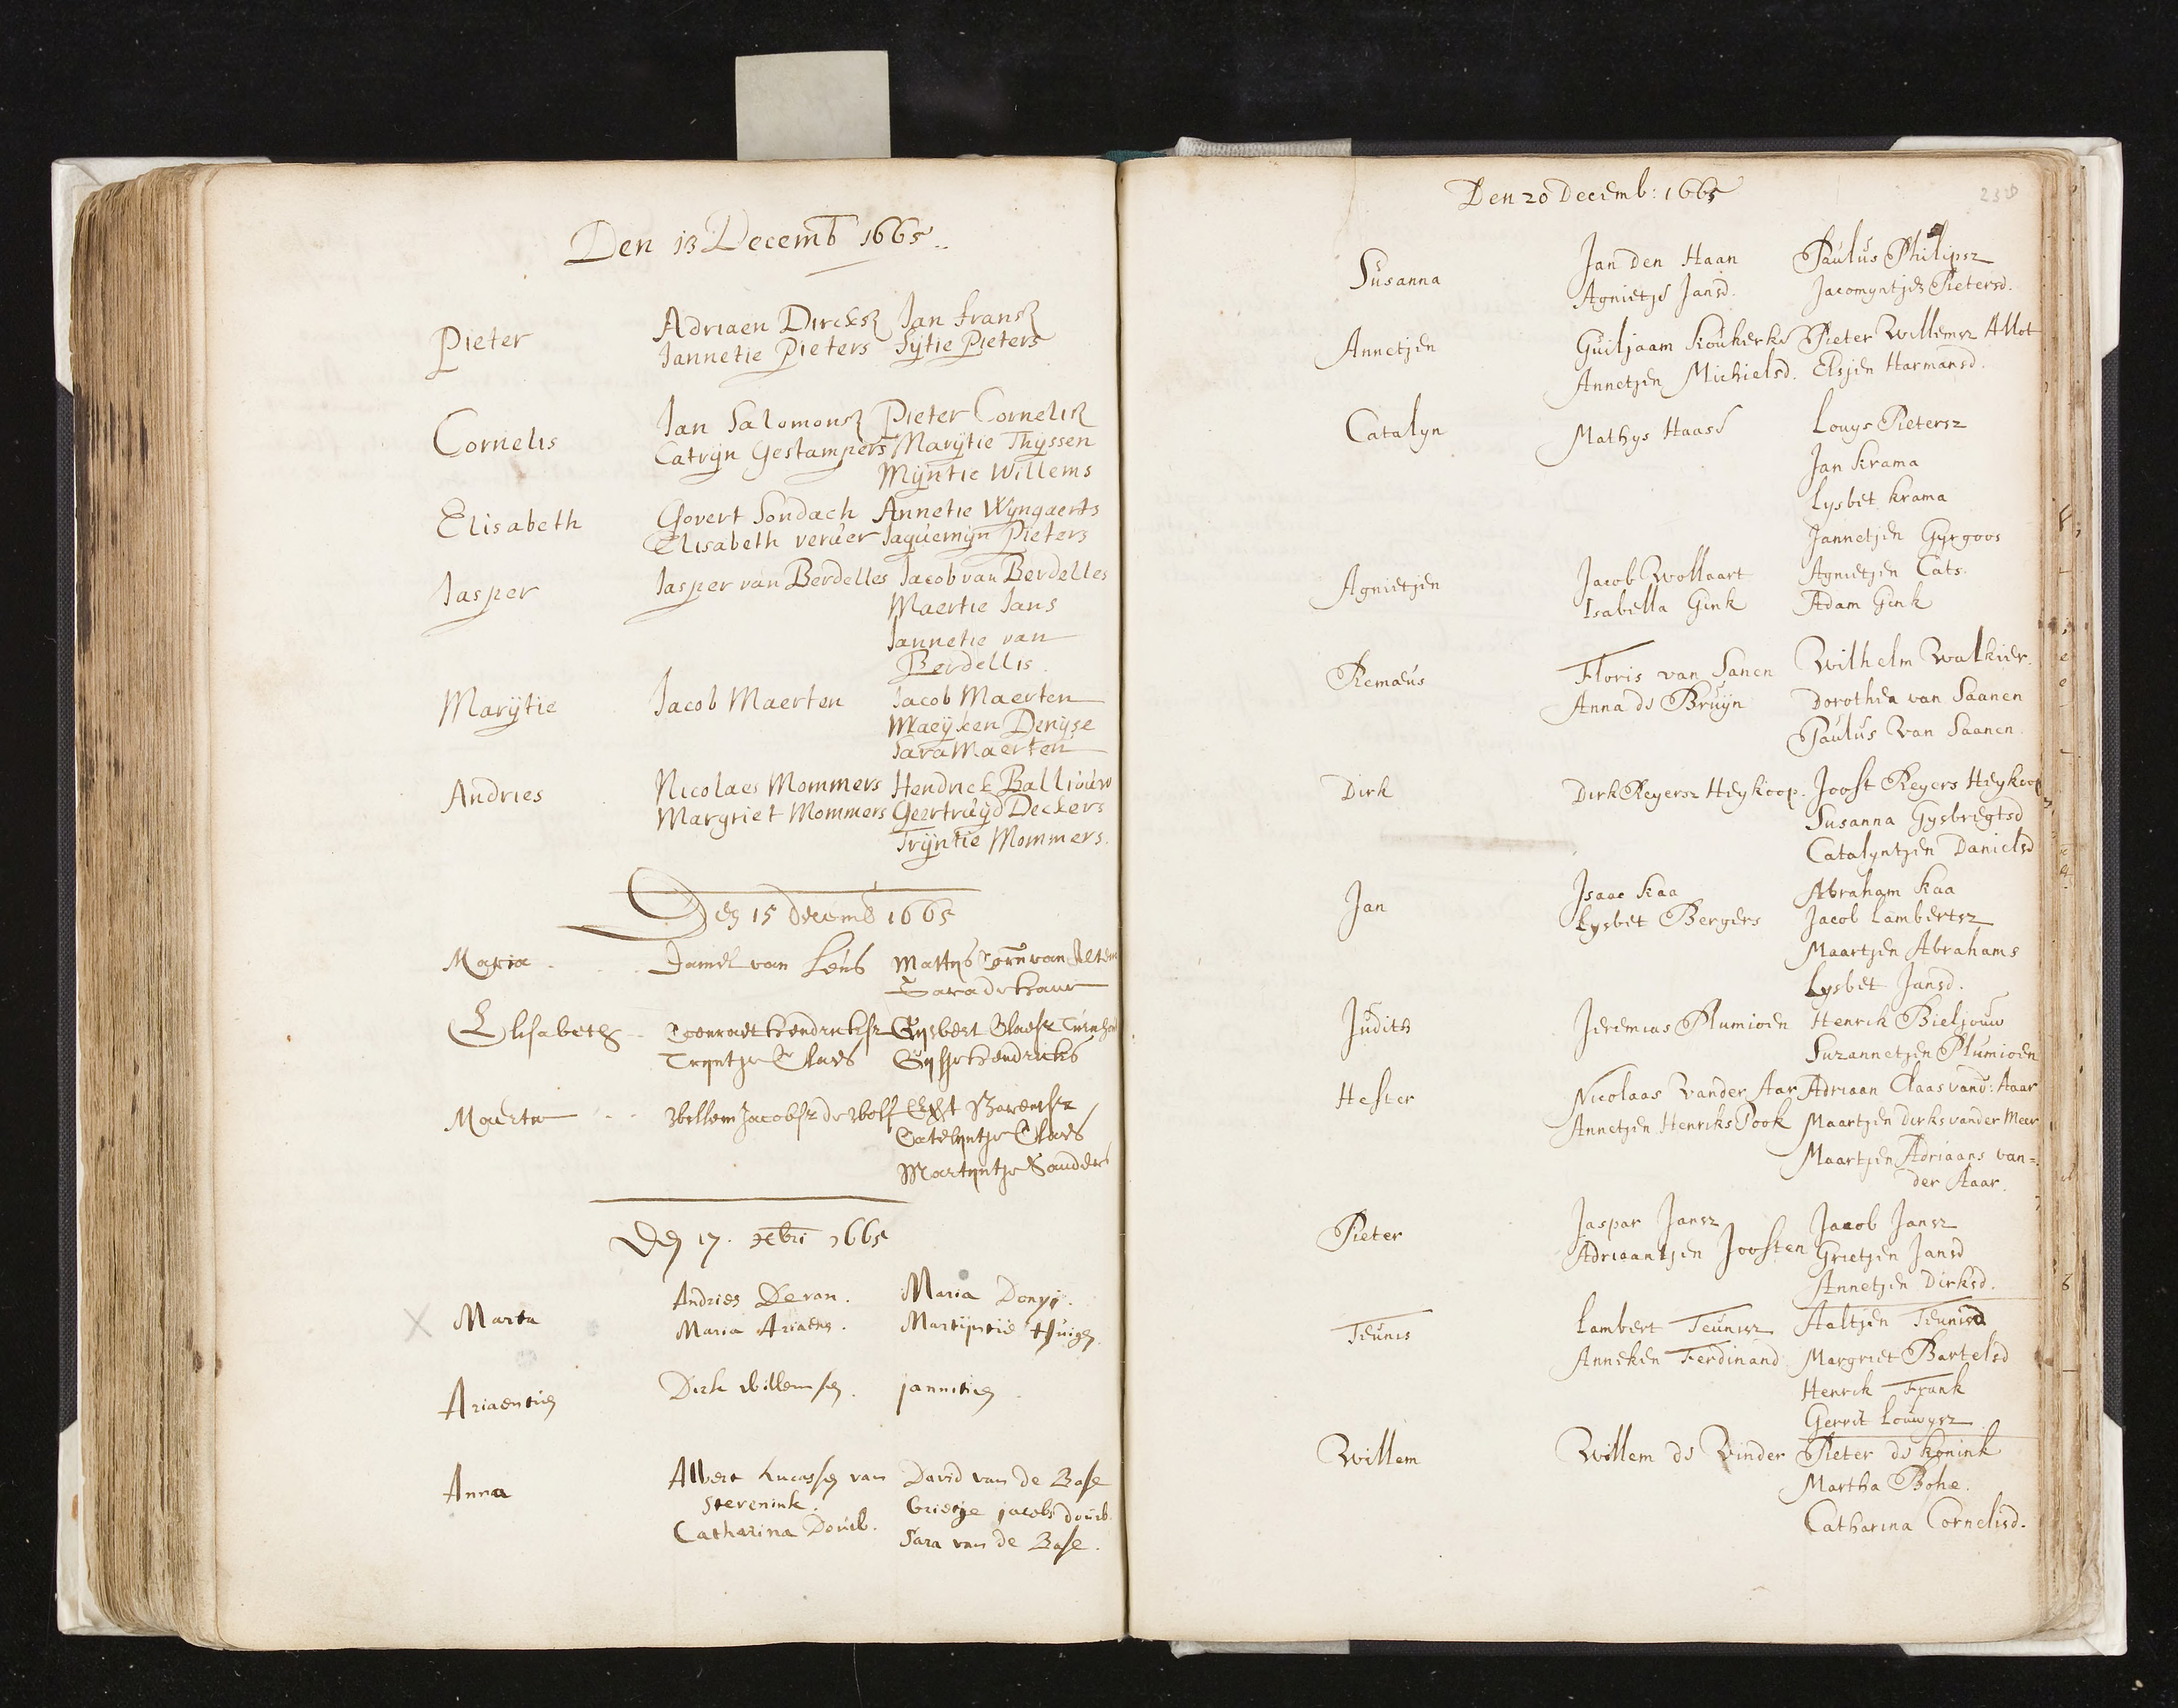 Den 13 Decemb 1665
Pieter
Adriaen Dircksz Jan fransz
Jannetie Pieters Sytie Pieters
Cornelis
Jan Salomonsz Pieter Cornelisz
Catryn Gestampers Marytie Thyssen
Myntie Willems
Elisabeth
Govert Sondach Annetie Wyngaerts
Elisabeth verver Jaquemyn Pieters
Jasper
Jasper van Berdelles Jacob van Berdelles
Maertie Jans
Jannetie van
Berdellis
Marytie
Jacob Maerten Jacob Maerten
Maeyken Denyse
Sara Maerten
Andries
Nicolaes Mommers Hendrick Balliouw
Margriet Mommers Geertruyd Deckers
Tryntie Mommers.
Den 15 decemb 1665
Maria
Daniel van Lens Mattys van
Sara de
Elisabeth
Coenraet Hendricksz Gysbert Claesz
Tryntje Claes Gysje Hendricks
Maerten
Willem Jacobsz de Wolf Barentsz
Catelyntje Claes
Martyntje Sanders
Den 17. xbri 1665
Marta
Andries Devan. Maria Denys.
Maria Ariaens. Martyntie Huigen
Ariaentien
Dirk Willemsen. jannitien
Anna
Albert Lucassen van David van de Base
Sterenink. Grietje jacobs Doueb.
Catharina Doueb. Sara van de Base.
Den 20 Decemb: 1665
Susanna
Jan den Haan Paulus Philipsz
Agnietje Jansd. Jacomyntjen Pietersd.
Annetjen
Guiljaam Koukerke Pieter Willemsz Allot
Annetjen Michielsd. Elsjen Harmansd.
Catalyn
Mathys Haase Louys Pietersz
Jan Krama
Lysbet Krama
Jannetjen Gyrgoos
Agnietjen
Jacob Wollaart Agnietjen Cats.
Isabella Gink Adam Gink
Remaeus
Floris van Sanen Wilhelm Walkier.
Anna de Bruyn Dorothea van Saanen
Paulus van Saanen.
Dirk
Dirk Reyersz Heykoop. Joost Reyers Heykoop
Susanna Gysbregtsd
Catalyntjen Danielsd
Jan
Isaac Kaa Abraham Kaa
Lysbet Bergers Jacob Lambertsz
Maartjen Abrahams
Lysbet Jansd.
Judith
Jeremias Plumioen Henrik Bieljouw
Suzannetjen Plumioen
Hester
Nicolaas Vander Aar Adriaan Claas vand: Aaar
Annetjen Henriks Pook Maartjen Dirks vander Meer
Maartjen Adriaans van=
der Aaar.
Pieter
Jaspar Jansz Jacob Jansz
Adriaantjen Joosten Grietjen Jansd
Annetjen Dirksd.
Teunis
Lambert Teunisz Aeltjen Teunisd
Anneken Ferdinand Margriet Bartelsd
Henrik Frank
Gerrit Louwysz
Willem
Willem de Vinder Pieter de Konink
Martha Bohe.
Catharina Cornelisd.